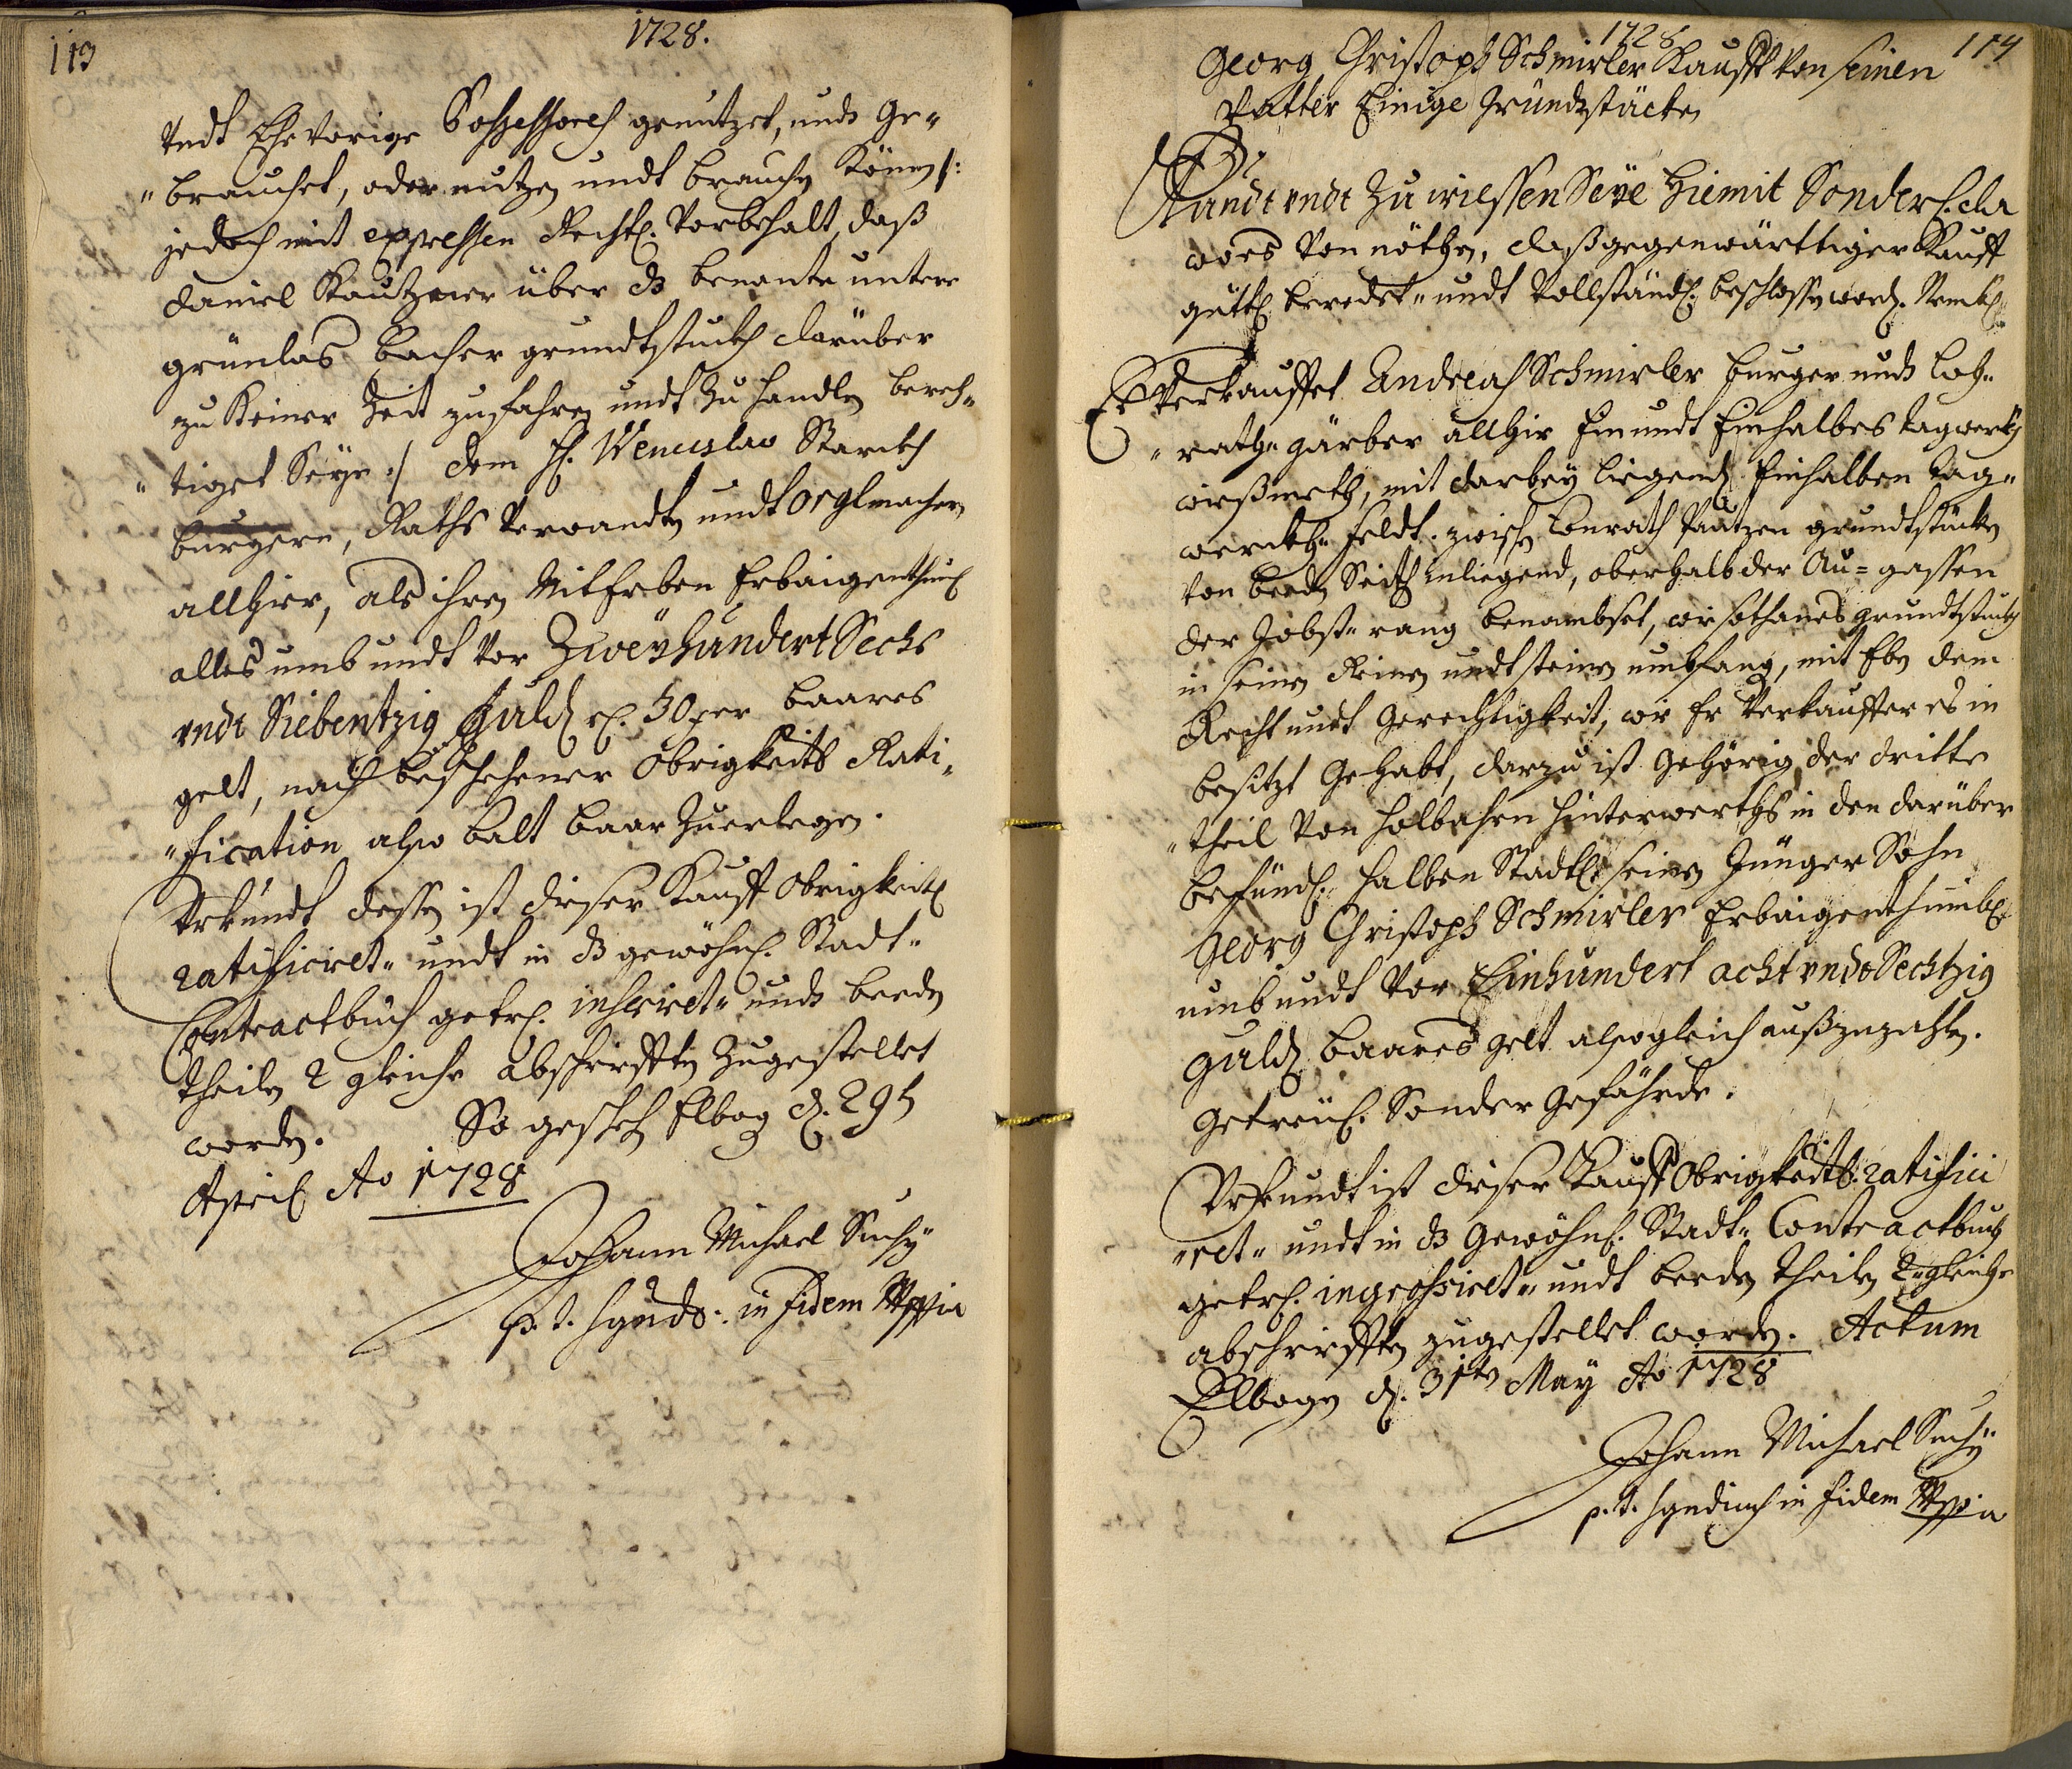 113
1728.
undt Ehevorige Possessores genutzet, undt Ge¬
"brauchet, oder nutzen undt brauchen können /:
jedoch mit expressen Rechtl. Vorbehalt, daß
Daniel Kautzner über dz benante untere
grünlas bacher grundtstuckh darüber
zu Keiner Zeit zu fahren undt zu handlen berech¬
"tiget seye :/ dem H. Wenceslao Starckh
burgern, Raths Verwandten undt Orglmachern
allhier, als ihren Miterben Erbaigenthuml
alles umb undt vor Zweÿhundert Sechs
undt Siebentzig Guld. r. 30 xer baares
gelt, nach beschehener Obrigkeitl Rati¬
"fication also balt baar zuerlegen.
Urkundt dessen ist dieser Kauff Obrigkeitl
ratificiret" undt in dz gewöhnl. Stadt"
Contractbuch getrl. inseriret" undt beeden
theilen 2 gleiche abschrifften zugestellet
worden. So geschehen Elbog d. 29t
April Ao 1728
Johann Michael Suchÿ
p. t. Synds: in fidem Mppia
1728
114
Georg Christoph Schmirler Kaufft von seinen
Vatter Einige Gründtstücke
Kundt undt Zu wiessen Seÿe Hiemit Sonderl. da
woes von nöthen, daß gegenwärttiger Kauff
güttl beredet" undt vollständl. beschlossen word. Nembl.
Es Verkauffet Andreas Schmirler burger undt Loh¬
"rath" gärber allhir Ein undt Einhalbes tagwerkh
wießmath, mit darbey liegend. Einhalben tag"
werckh" Feldt. zwischen Conrath Pautzen grundtstücken
von beeden Seiten inliegend, oberhalb der Au= gassen
der Jobst" rang benambset, wie sothanes grundtstuckh
in seinen Reinen undt steinen umbfang, mit Eben dem
Recht undt Gerechtigkeit, wie Er Verkauffer es in
besitzt Gehabt, darzu ist Gehörig der dritte
"theil von holbahrn hinterwerths in den darüber
befündl. halben Stadtl. seinen Jünger Sohn
Georg Christoph Schmirler Erbaigenthumbl.
umb undt vor Einhundert acht undt Sechtzig
guld. baares gelt alsogleich außzuzahlen.
Getreül. Sonder Gefährde.
Urkundt ist dieser Kauff Obrigkeitl. ratifici
"ret" undt in dz Gewöhnl. Stadt" Contractbuch
getrl. ingrossiret" undt beeden theilen 2" gleiche
abschrifften zugestellet worden. Actum
Elbogen d. 31ten May Ao 1728
Johann Michael Suchÿ
p. t. Syndicus in fidem Mppia